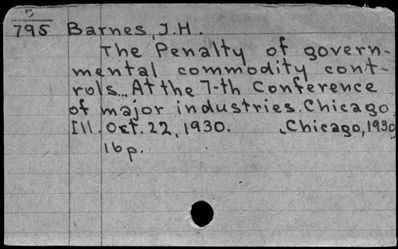 795 Barnes, J.H.
The Penalty of govern-
mental commodity cont-
rols... At the 7-th Conference
of major industries. Chicago,
Ill. Oct. 22, 1930. Chicago, 1930
16p.